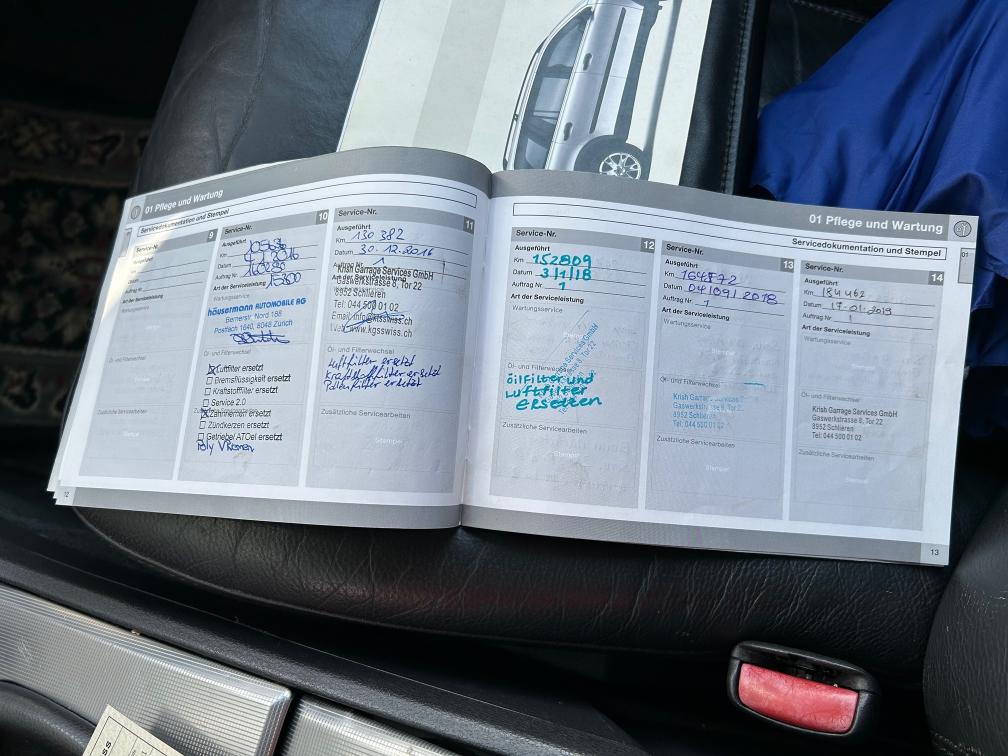 01 Pflege und Wartung
Servicedokumentation und Stempel
9
Service-Nr.
Ausgeführt
Km
Datum
Auftrag Nr.
Art der Serviceleistung
Wartungsservice
Öl- und Filterwechsel
Zusätzliche Servicearbeiten
12
10
Service-Nr.
Ausgeführt
Km
Datum
Auftrag Nr.
Art der Serviceleistung
Wartungsservice
häusermann AUTOMOBILE AG
Bernerstr. Nord 188
Postfach 1640, 8048 Zürich
Luftfilter ersetzt
Bremsflüssigkeit ersetzt
Kraftstofffilter ersetzt
Service 2.0
Zahnriemen ersetzt
Zündkerzen ersetzt
Getriebe/ ATOel ersetzt
Poly V Riemen
11
Service-Nr.
Ausgeführt
Km 130 382
Datum 30.12.2016
Auftrag Nr. 1
Krish Garage Services GmbH
Art der Serviceleistung
Gaswerkstrasse 8, Tor 22
8952 Schlieren
Tel: 044 500 01 02
www.kgsswiss.ch
Öl- und Filterwechsel
Luftfilter ersetzt
Kraftstofffilter ersetzt
Pollenfilter ersetzt
Zusätzliche Servicearbeiten
Stempel
01 Pflege und Wartung
Servicedokumentation und Stempel
01
12
Service-Nr.
Ausgeführt
Km 152809
Datum 3/1/18
Auftrag Nr. 1
Art der Serviceleistung
Wartungsservice
Öl- und Filterwechsel
öilfilter und
Luftfilter
ersetzen
Zusätzliche Servicearbeiten
Stempel
13
Service-Nr.
Ausgeführt
Km 164872
Datum 04/09/2018
Auftrag Nr. 1
Art der Serviceleistung
Wartungsservice
Öl- und Filterwechsel
Krish Garage Services GmbH
Gaswerkstrasse 8, Tor 22
8952 Schlieren
Tel. 044 500 01 02
Zusätzliche Servicearbeiten
Stempel
14
Service-Nr.
Ausgeführt
Km 184462
Datum 17-01-2019
Auftrag Nr. 1
Art der Serviceleistung
Wartungsservice
Öl- und Filterwechsel
Krish Garage Services GmbH
Gaswerkstrasse 8, Tor 22
8952 Schlieren
Tel: 044 500 01 02
Zusätzliche Servicearbeiten
Stempel
13